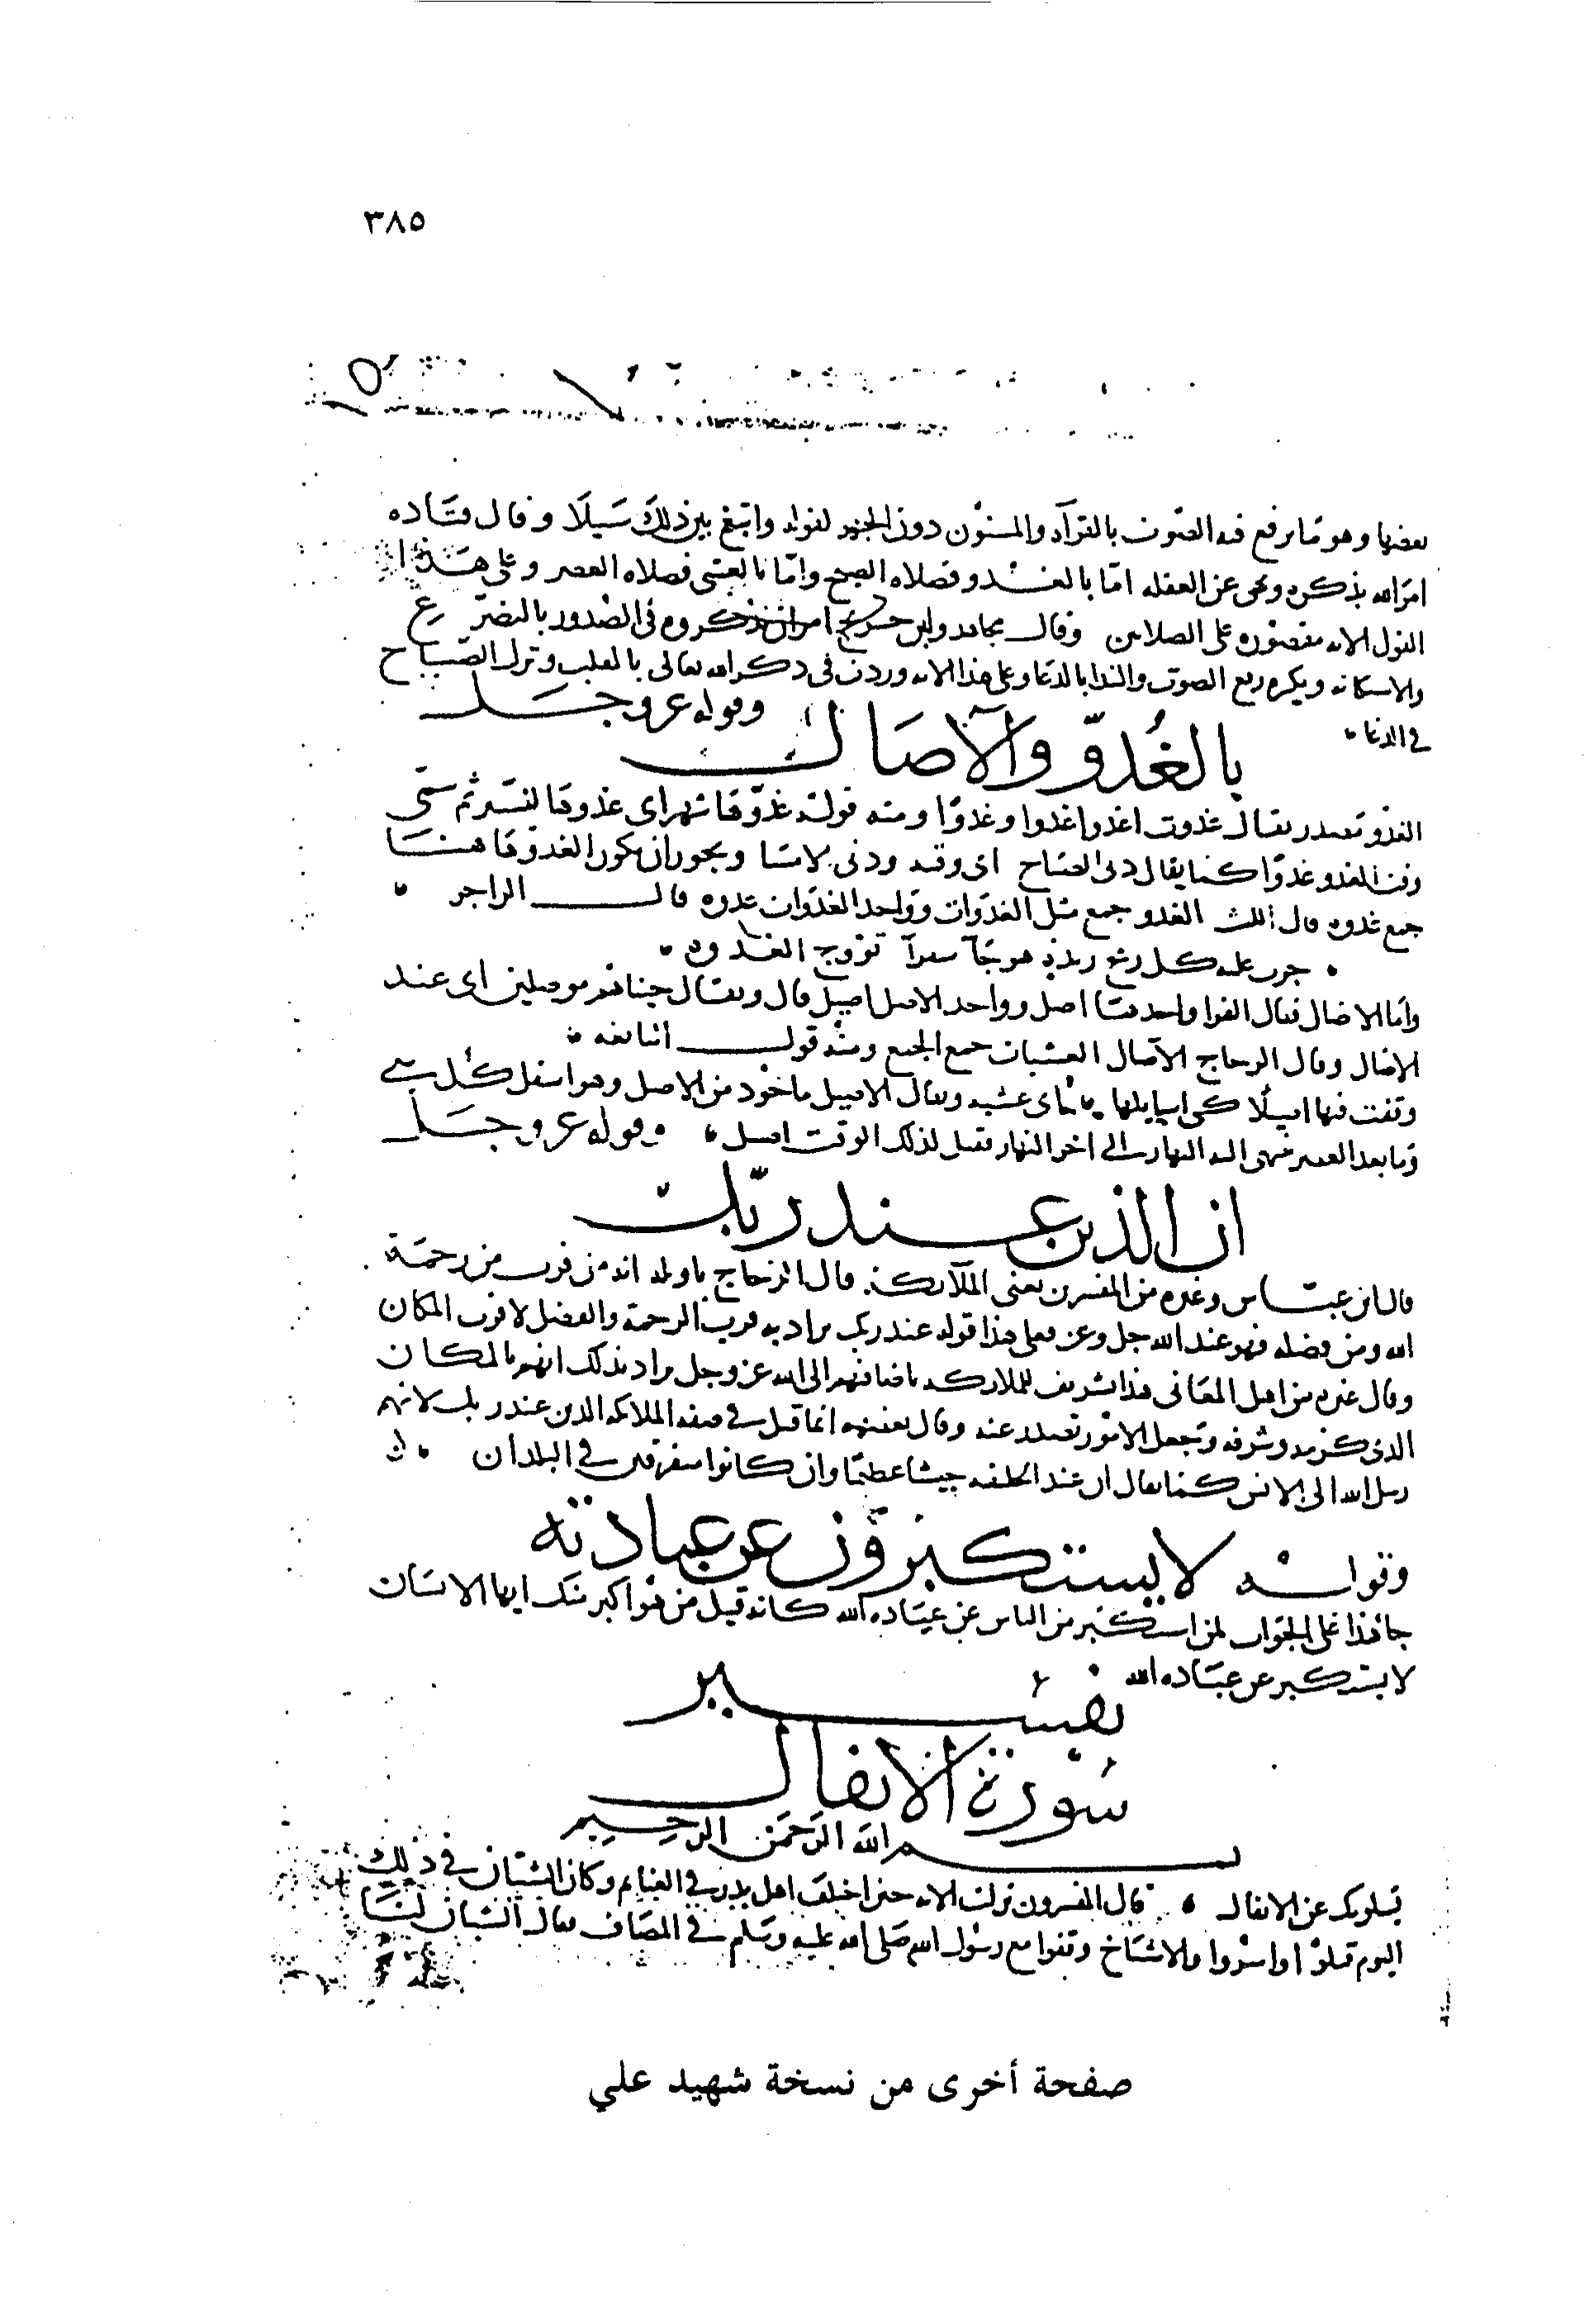 ٣٨٥
بعضها وهو ما يرفع فيه الصوت بالقرآن والمسنون دون الجهر لقوله وابتغ بين ذلك سبيلا وقال قتاده
امر الله بذكره ونهى عن الغفله اما بالغدو فصلاه الصبح واما بالعشي فصلاه العصر وعلى هذا
القول الايه مقصوره على الصلاتين وقال مجاهد وابن جريج امر ان يذكروه في الصدور بالتضرع
والاستكانه ويكره رفع الصوت والندا بالدعا وعلى هذا الايه وردت في ذكر الله تعالى بالقلب وترك الصياح
في الدعا وقوله عز وجل
بالغدو والآصال
الغدو مصدر يقال غدوت اغدوا غدوا وغدوا ومنه قوله غدوها شهر اي غدوها للسير ثم سمى
وقت الغدو غدوا كما يقال دنى الصباح اي وقته ودنى الامسا ويجوز ان يكون الغدو هاهنا
جمع غدوه قال الليث الغدو جمع مثل الغدوات وواحد الغدوات غدوه قال الراجز
جرت عليه كل ريح تروح الغدو
واما الاصال فقال الفرا واحدها اصل وواحد الاصل اصيل قال ويقال جئناهم موصلين اي عند
الاصال وقال الزجاج الآصال العشيات جمع الجمع ومنه قول النابغه
وقفت فيها اصيلا كي اسايلها اي عشيه ويقال الاصيل ماخوذ من الاصل وهو اسفل كل شي
وما بعد العصر ينتهي اليه النهار الى اخر النهار فقيل لذلك الوقت اصيل وقوله عز وجل
ان الذين عند ربك
قال ابن عباس وغيره من المفسرين يعني الملآئكة قال الزجاج تاويله انه من قرب من رحمة
الله ومن فضله فهو عند الله جل وعز فعلى هذا قوله عند ربك يراد به قرب الرحمة والفضل لا قرب المكان
وقال غيره من اهل المعاني هذا تشريف للملائكه باضافتهم الى الله عز وجل يراد بذلك انهم بالمكان
الذي كرمه وشرفه وتجعل الامور تصدر عنه وقال بعضهم انما قيل في صفه الملائكه الذين عند ربك لانهم
رسل الله الى الانس كما يقال ان عند الخليفه جيشا عظيما وان كانوا متفرقين في البلدان
وقوله لا يستكبرون عن عبادته
جا هذا على الجواب لمن استكبر من الناس عن عباده الله كانه قيل من هو اكبر منك ايها الانسان
لا يستكبر عن عباده الله
تفسير
سورة الانفال
بسم الله الرحمن الرحيم
يسلونك عن الانفال قال المفسرون نزلت الايه حين اختلف اهل بدر في الغنايم وكان الشبان في ذلك
اليوم قتلوا واسروا والاشياخ وقفوا مع رسول الله صلى الله عليه وسلم في المصاف فقال الشبان لنا
صفحة أخرى من نسخة شهيد علي